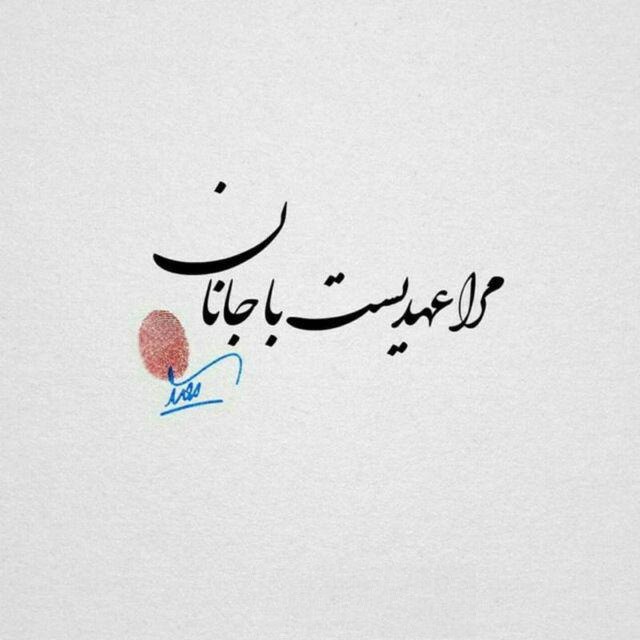 مرا عهدیست با جانان